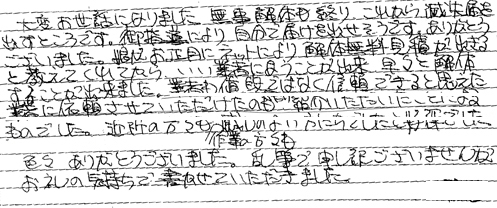 大変お世話になりました 無事解体も終り これから滅失届を
出すところです。御指導により自分で届けを出せそうです。ありがとう
ございました。 お正月にネットにより解体無料見積が出来る
と教えてくれてたら、いい業者に会うことが出来 早々と解体
することが出来ました。 値段ではなく信頼できると思えた
業者に依頼させていただけたのも
ものでした。近所の方々も
作業の方々も
色々ありがとうございました。乱筆で申し訳ございませんが
お礼の気持ちで書かせていただきました。